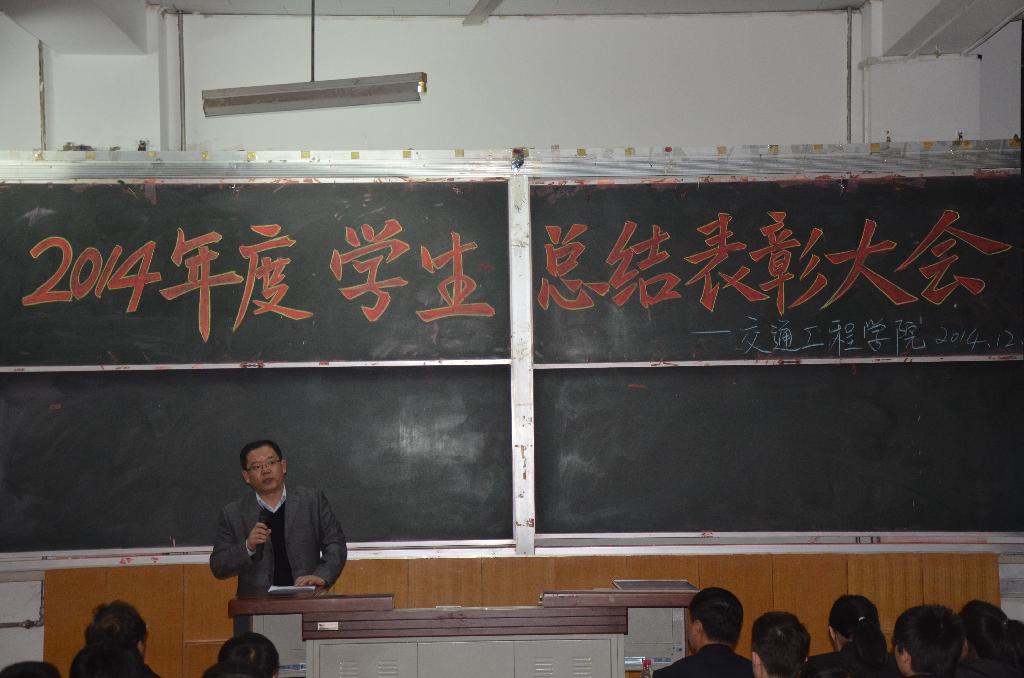 2014年度学生总结表彰大会
—交通工程学院 2014.12